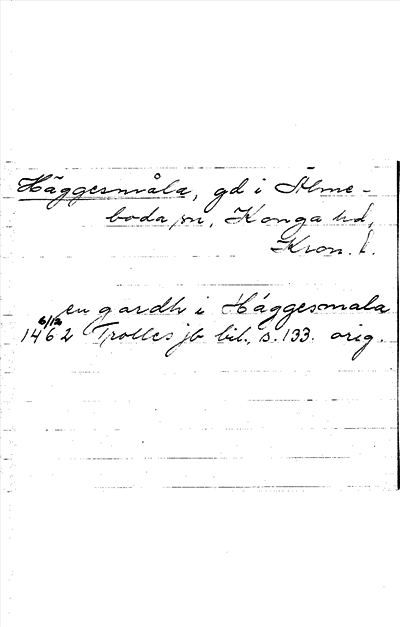 Häggesmåla, gd i Älme-
boda sn, Konga hd,
Kron. l.
en gardh i Häggesmala
6/12 1462 Trolles jb bil., s. 133. orig.